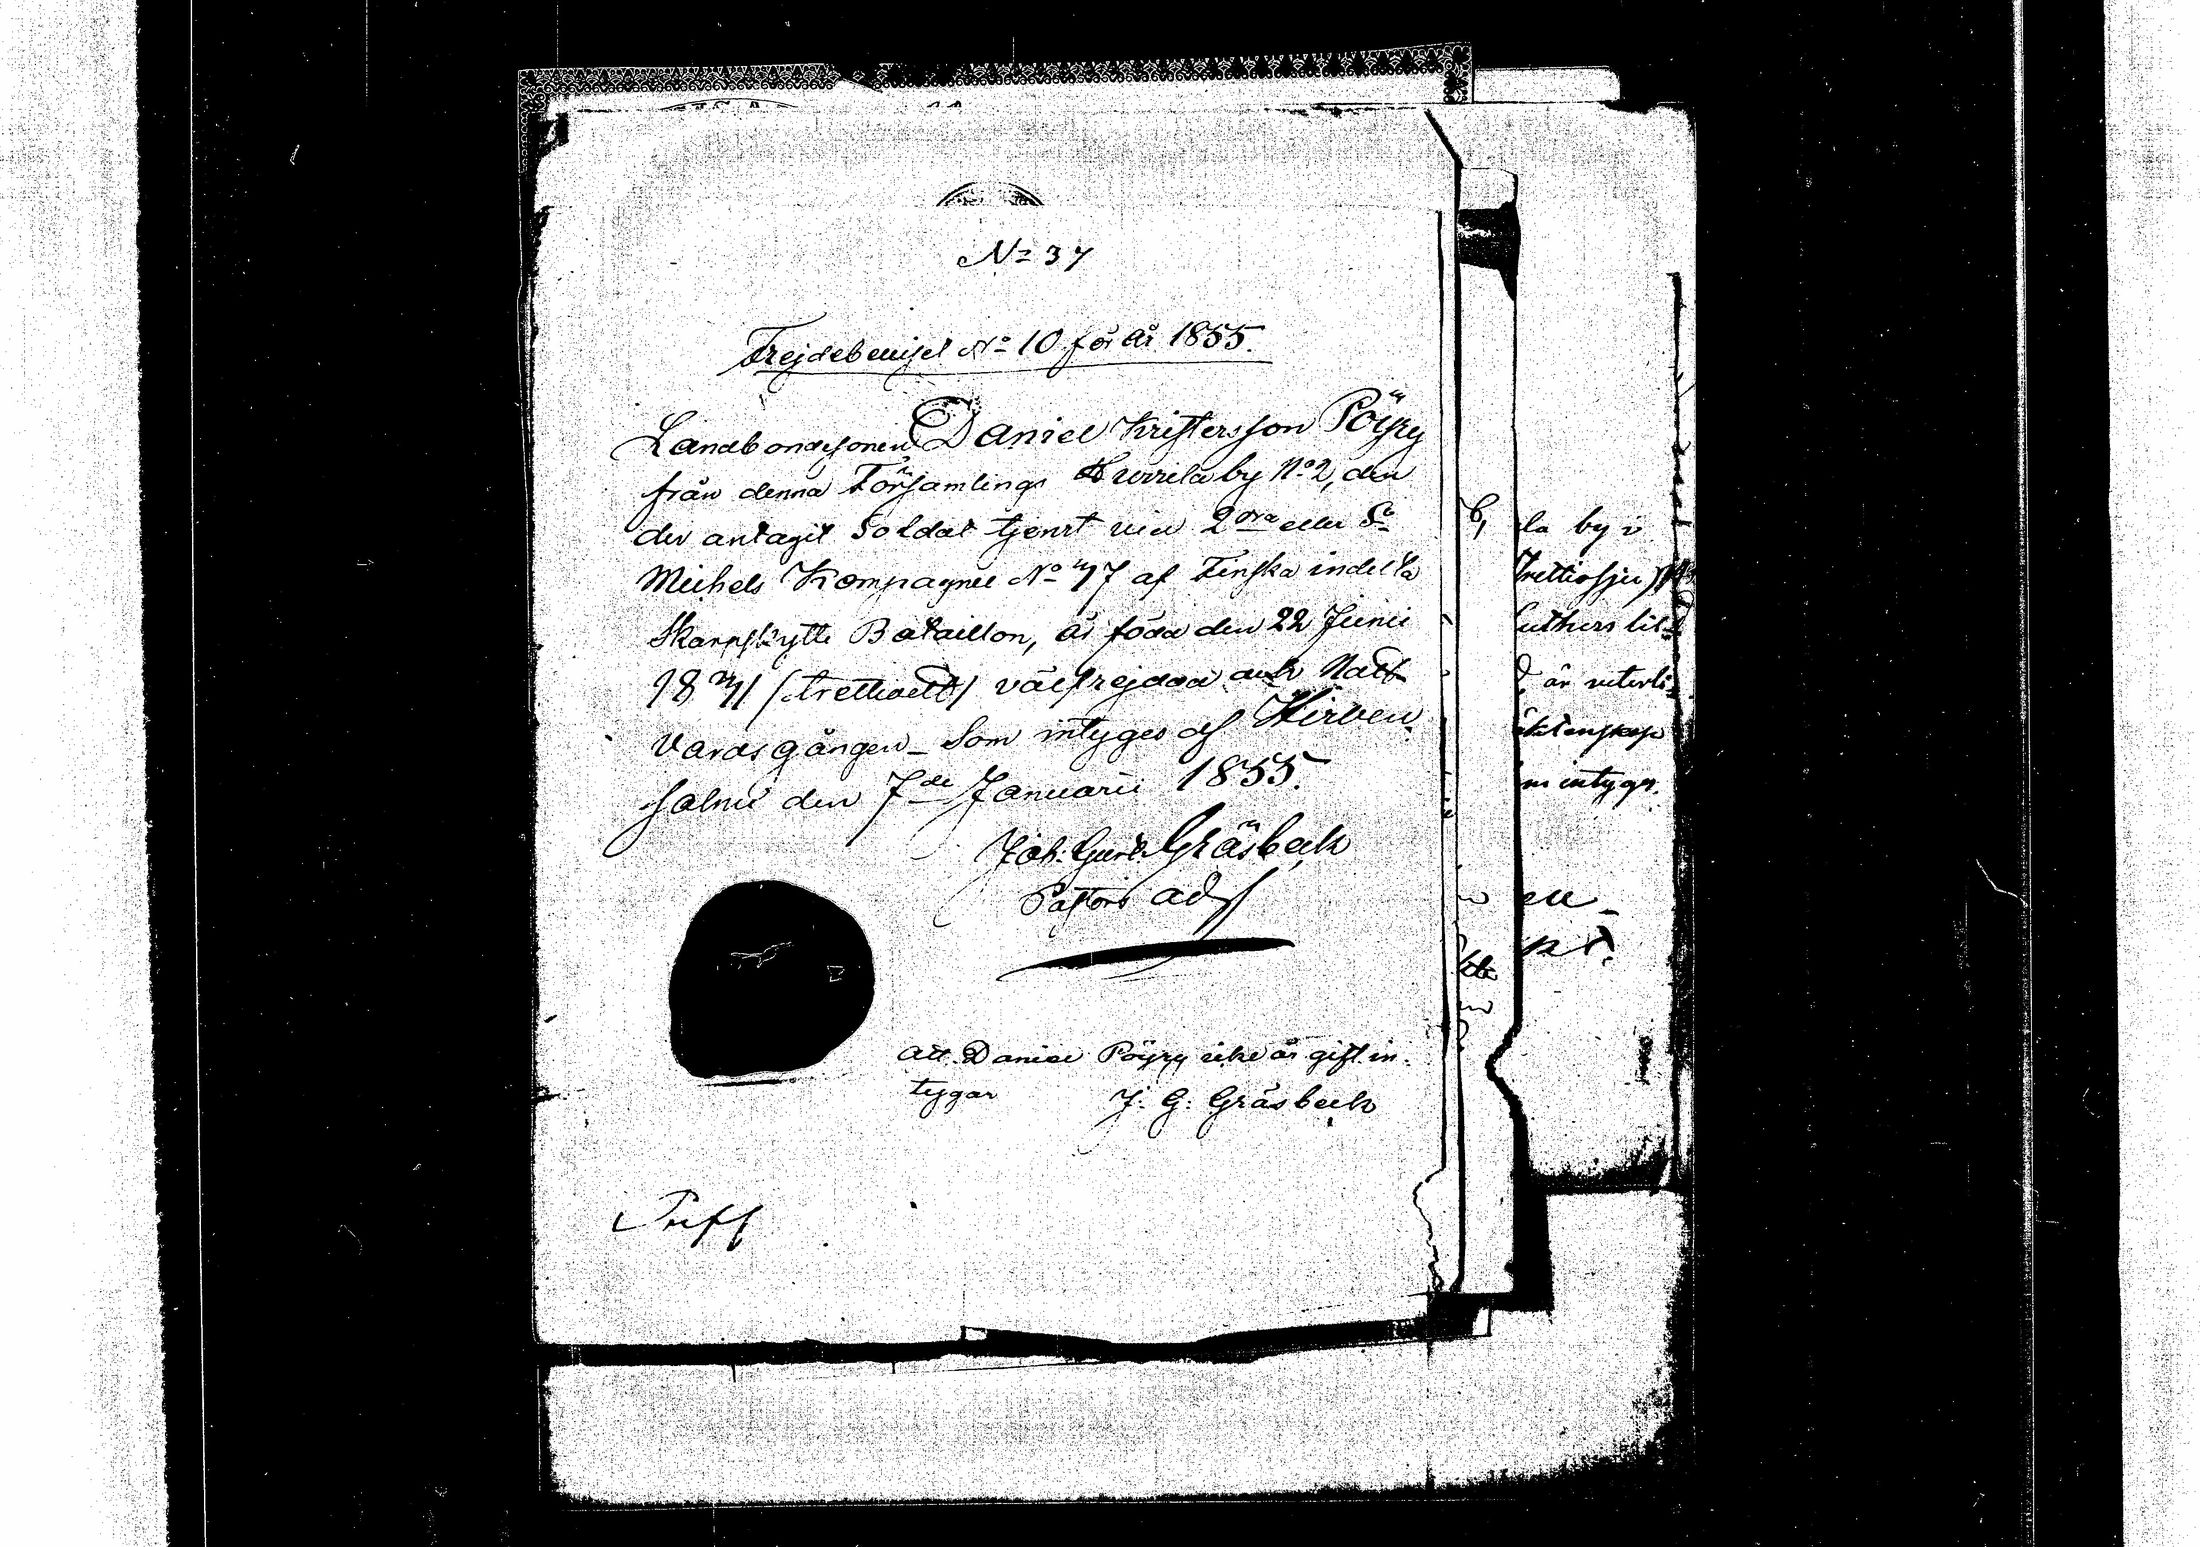 No 37
Frejdebeviset No 10 för År 1855.
Landbondesonen Daniel Kristersson Pöyry
från denna Församlings Hurrila by No 2, den
der antagit Soldat tjenst vid 2dra eller St
Michels Kompagnie No 47 af Finska indelta
Skarpskytte Bataillon, är född den 22 Junii
1831 (trettioett) välfrejdad och Natt
vardsgången – Som intyges af Hirven
salmi den 7de Januarii 1855.
Joh: Gust: Gräsbeck
Pastors adj
Att Daniel Pöyry icke är gift in-
tygar J: G: Gräsbeck
la by i
trettiosju
Luthers lil-
är veterli-
äktenskap
m intygas.